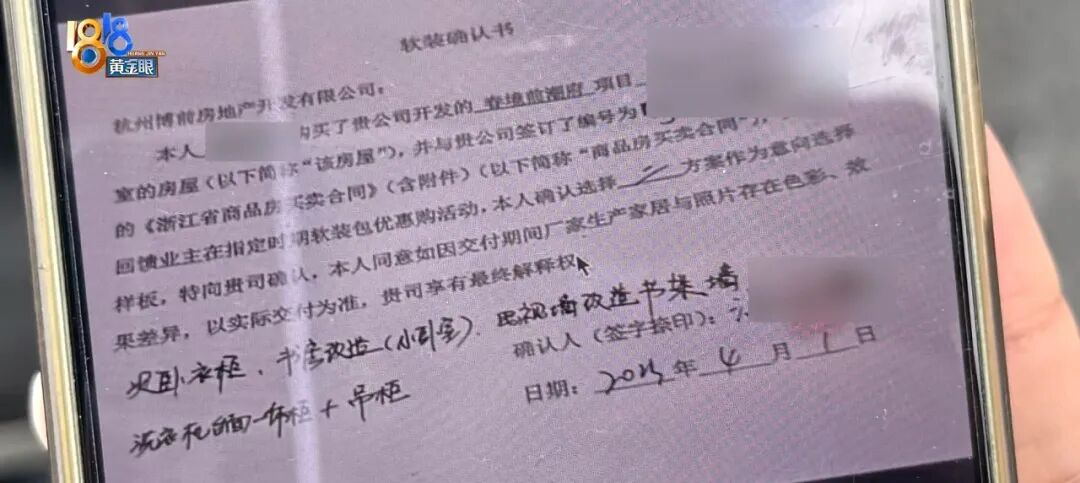 1818
黄金眼
软装确认书
杭州博前房地产开发有限公司：
本人 购买了贵公司开发的 春境前潮府 项目
室的房屋（以下简称“该房屋”），并与贵公司签订了编号为
的《浙江省商品房买卖合同》（含附件）（以下简称“商品房买卖合同”），
回馈业主在指定时期软装包优惠购活动，本人确认选择 二 方案作为意向选择
样板，特向贵司确认，本人同意如因交付期间厂家生产家居与照片存在色彩、效
果差异，以实际交付为准，贵司享有最终解释权
次卧衣柜、书房改造（小卧室）、电视墙改造书架墙
确认人（签字捺印）：
洗衣机台面一体柜＋吊柜
日期： 2023 年 4 月 1 日